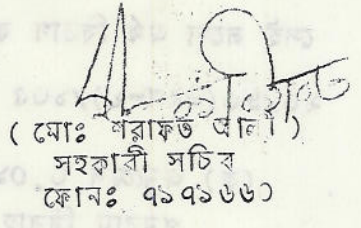 ( মোঃ শরাফত আলী )
সহকারী সচিব
ফোনঃ ৭১৭১৬৬১